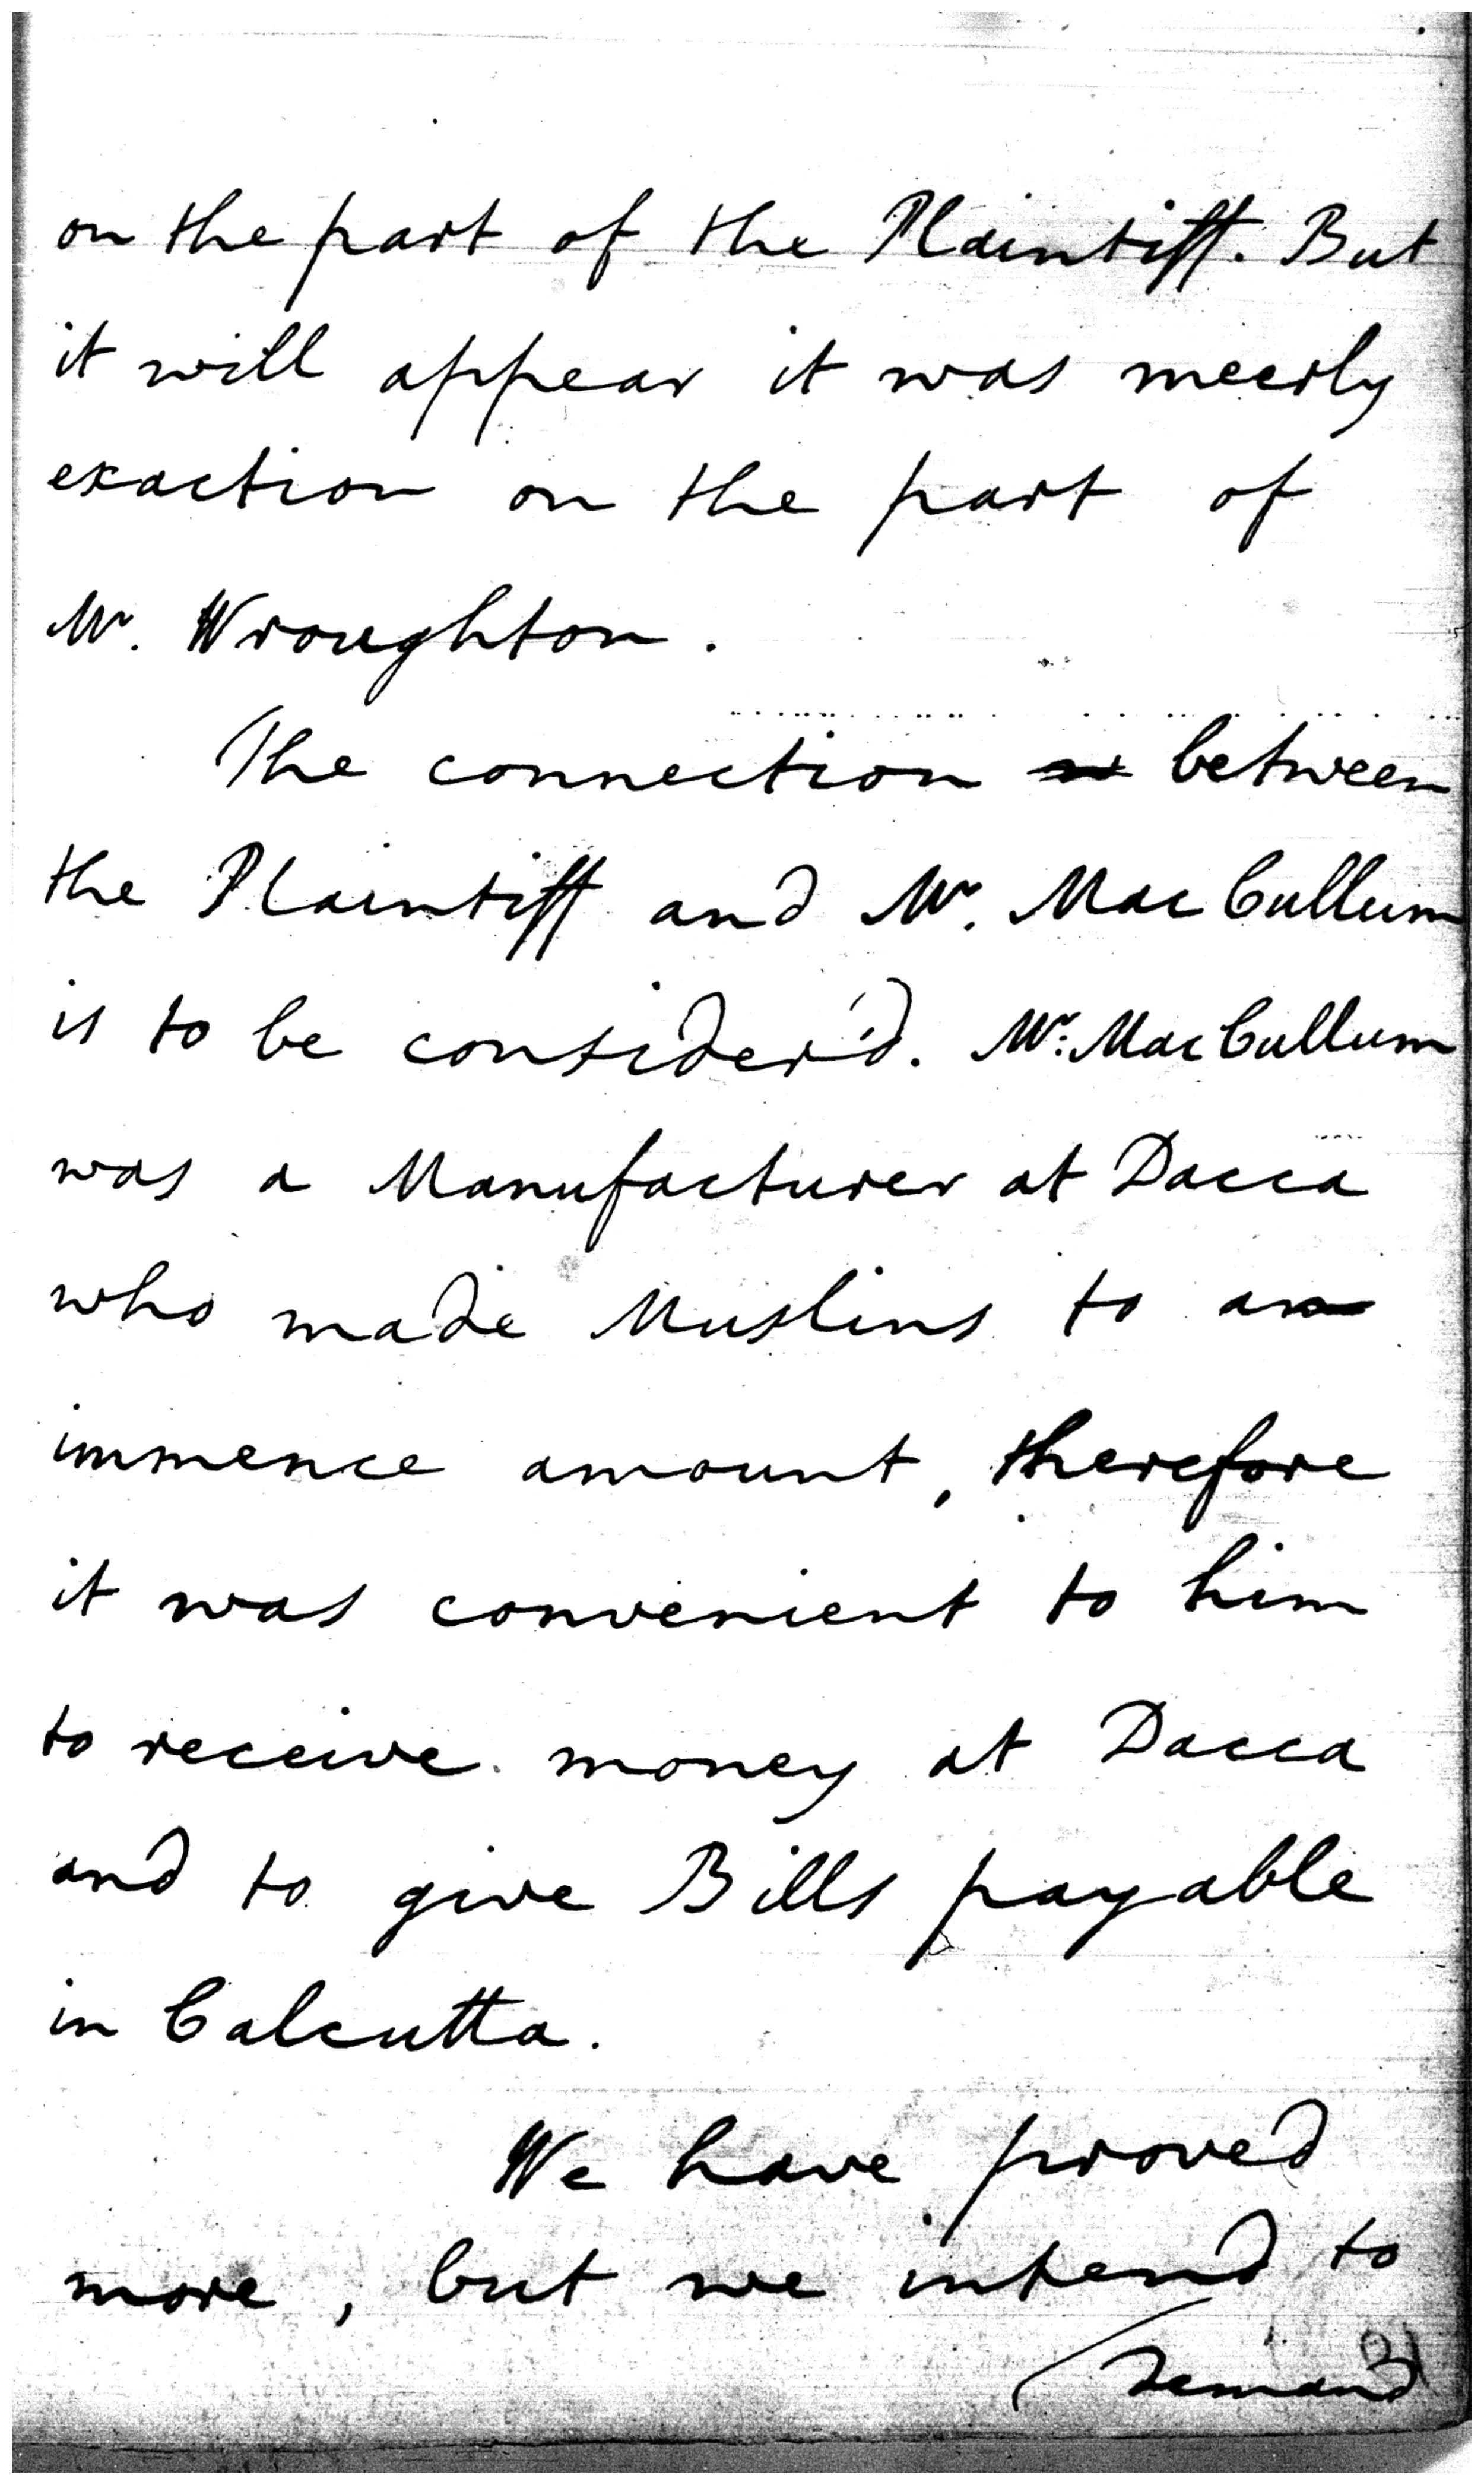 on the part of the Plaintiff. But
it will appear it was meerly
exaction on the part of
Mr. Wroughton.
The connection between
the Plaintiff and Mr. MacCullum
is to be consider'd. Mr. MacCullum
was a Manufacturer at Dacca
who made Muslins to an
immence amount, therefore
it was convenient to him
to receive money at Dacca
and to give Bills payable
in Calcutta.
We have proved
more, but we intend to
demand